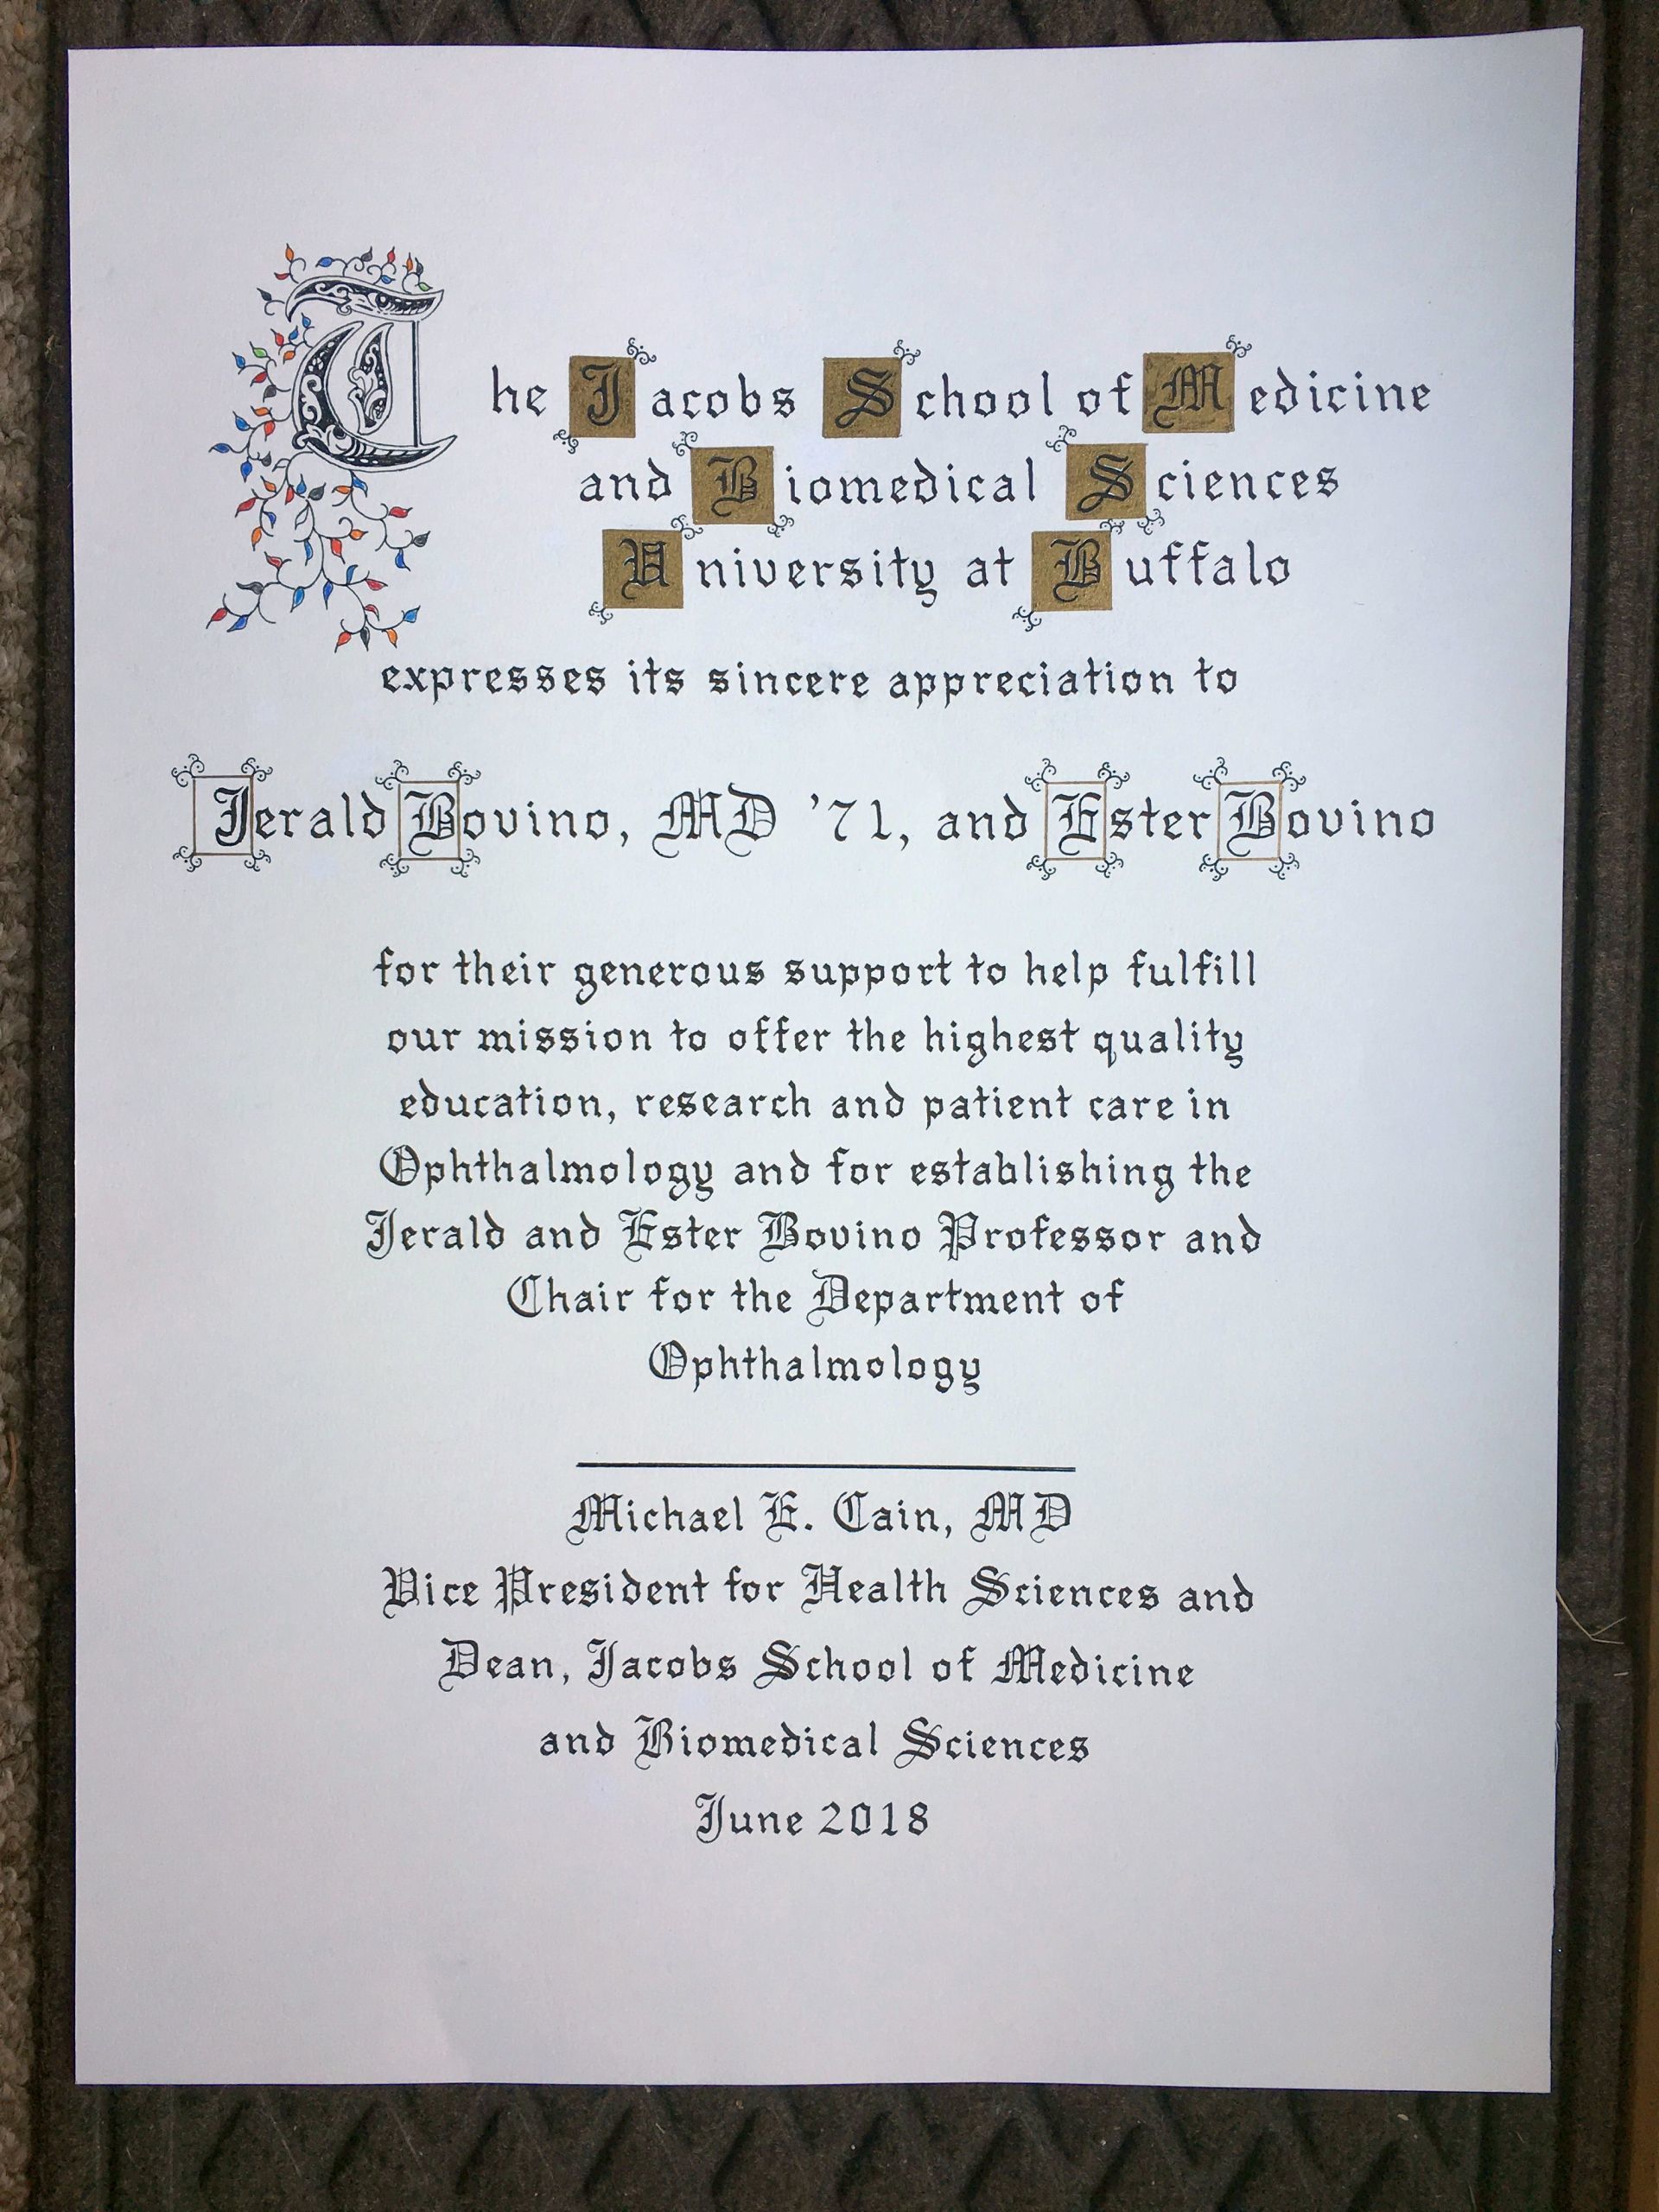 The Jacobs School of Medicine
and Biomedical Sciences
University at Buffalo
expresses its sincere appreciation to
Jerald Bovino, MD '71, and Ester Bovino
for their generous support to help fulfill
our mission to offer the highest quality
education, research and patient care in
Ophthalmology and for establishing the
Jerald and Ester Bovino Professor and
Chair for the Department of
Ophthalmology
Michael E. Cain, MD
Vice President for Health Sciences and
Dean, Jacobs School of Medicine
and Biomedical Sciences
June 2018